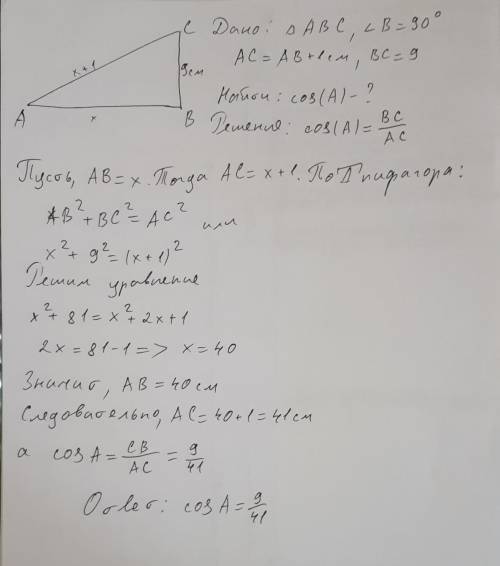 C
x+1
9см
A
x
B
Дано: △ABC, ∠B=90°
AC=AB+1см, BC=9
Найти: cos(A)-?
Решение: cos(A)=BC/AC
Пусть, AB=x. Тогда AC=x+1. По Т Пифагора:
AB²+BC²=AC² или
x²+9²=(x+1)²
Решим уравнение
x²+81=x²+2x+1
2x=81-1=> x=40
Значит, AB=40см
Следовательно, AC=40+1=41см
а cosA=CB/AC=9/41
Ответ: cosA=9/41